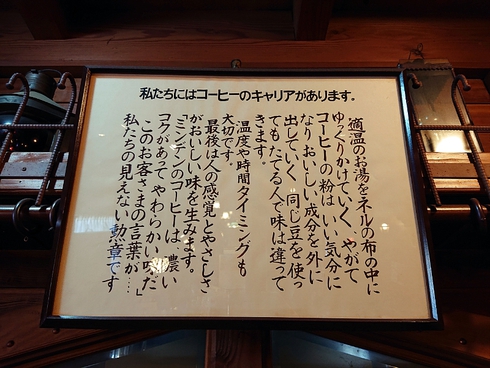 私たちにはコーヒーのキャリアがあります。
適温のお湯をネルの布の中に
ゆっくりかけていく、やがて
コーヒーの粉は いい気分に
なり おいしい成分を外に
出していく 同じ豆を使っ
てもたてる人で味は違って
きます。
温度や時間タイミングも
大切です。
最後は人の感覚とやさしさ
がおいしい味を生みます。
「ミンデンのコーヒーは、濃い
コクがあって やわらかい味だ」
このお客さまの言葉が…
私たちの見えない勲章です